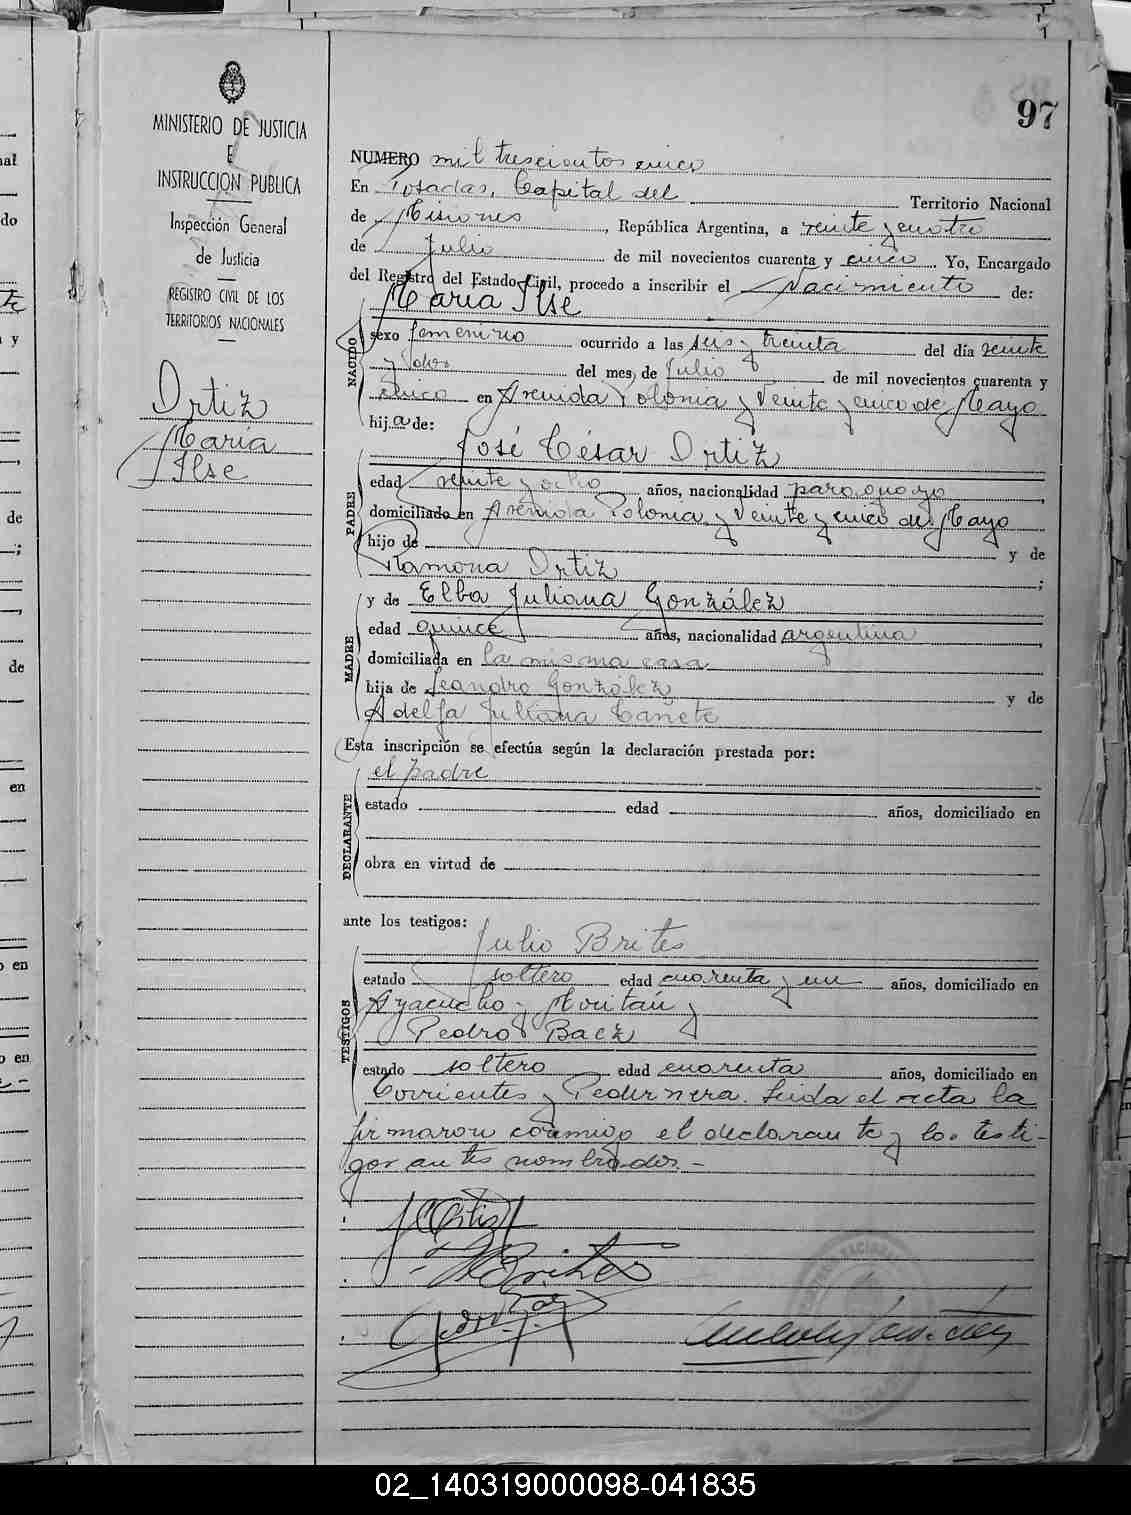 97
MINISTERIO DE JUSTICIA
E
INSTRUCCION PUBLICA
Inspección General
de Justicia
REGISTRO CIVIL DE LOS
TERRITORIOS NACIONALES
Ortiz
María
Ilse
NUMERO mil trescientos cinco
En Posadas, Capital del Territorio Nacional
de Misiones, República Argentina, a veinte y cuatro
de Julio de mil novecientos cuarenta y cinco. Yo, Encargado
del Registro del Estado Civil, procedo a inscribir el Nacimiento de:
María Ilse
NACIDO
sexo femenino ocurrido a las seis y treinta del día veinte
y dos del mes de Julio de mil novecientos cuarenta y
cinco en Avenida Polonia y Veinte y cinco de Mayo
hija de:
José César Ortiz
PADRE
edad veinte y ocho años, nacionalidad paraguayo,
domiciliado en Avenida Polonia y Veinte y cinco de Mayo
hijo de y de
Ramona Ortiz;
y de Elba Juliana González
MADRE
edad quince años, nacionalidad argentina,
domiciliada en la misma casa
hija de Leandro González y de
Adelfa Juliana Cañete
Esta inscripción se efectúa según la declaración prestada por:
el padre
DECLARANTE
estado edad años, domiciliado en
obra en virtud de
ante los testigos:
Julio Brites
TESTIGOS
estado soltero edad cuarenta y un años, domiciliado en
Ayacucho y Moritán y
Pedro Baez
estado soltero edad cuarenta años, domiciliado en
Corrientes y Pedernera. Leida el acta la
firmaron conmigo el declarante y los testi-
gos antes nombrados.-
JCOrtiz
Brites
02_140319000098-041835